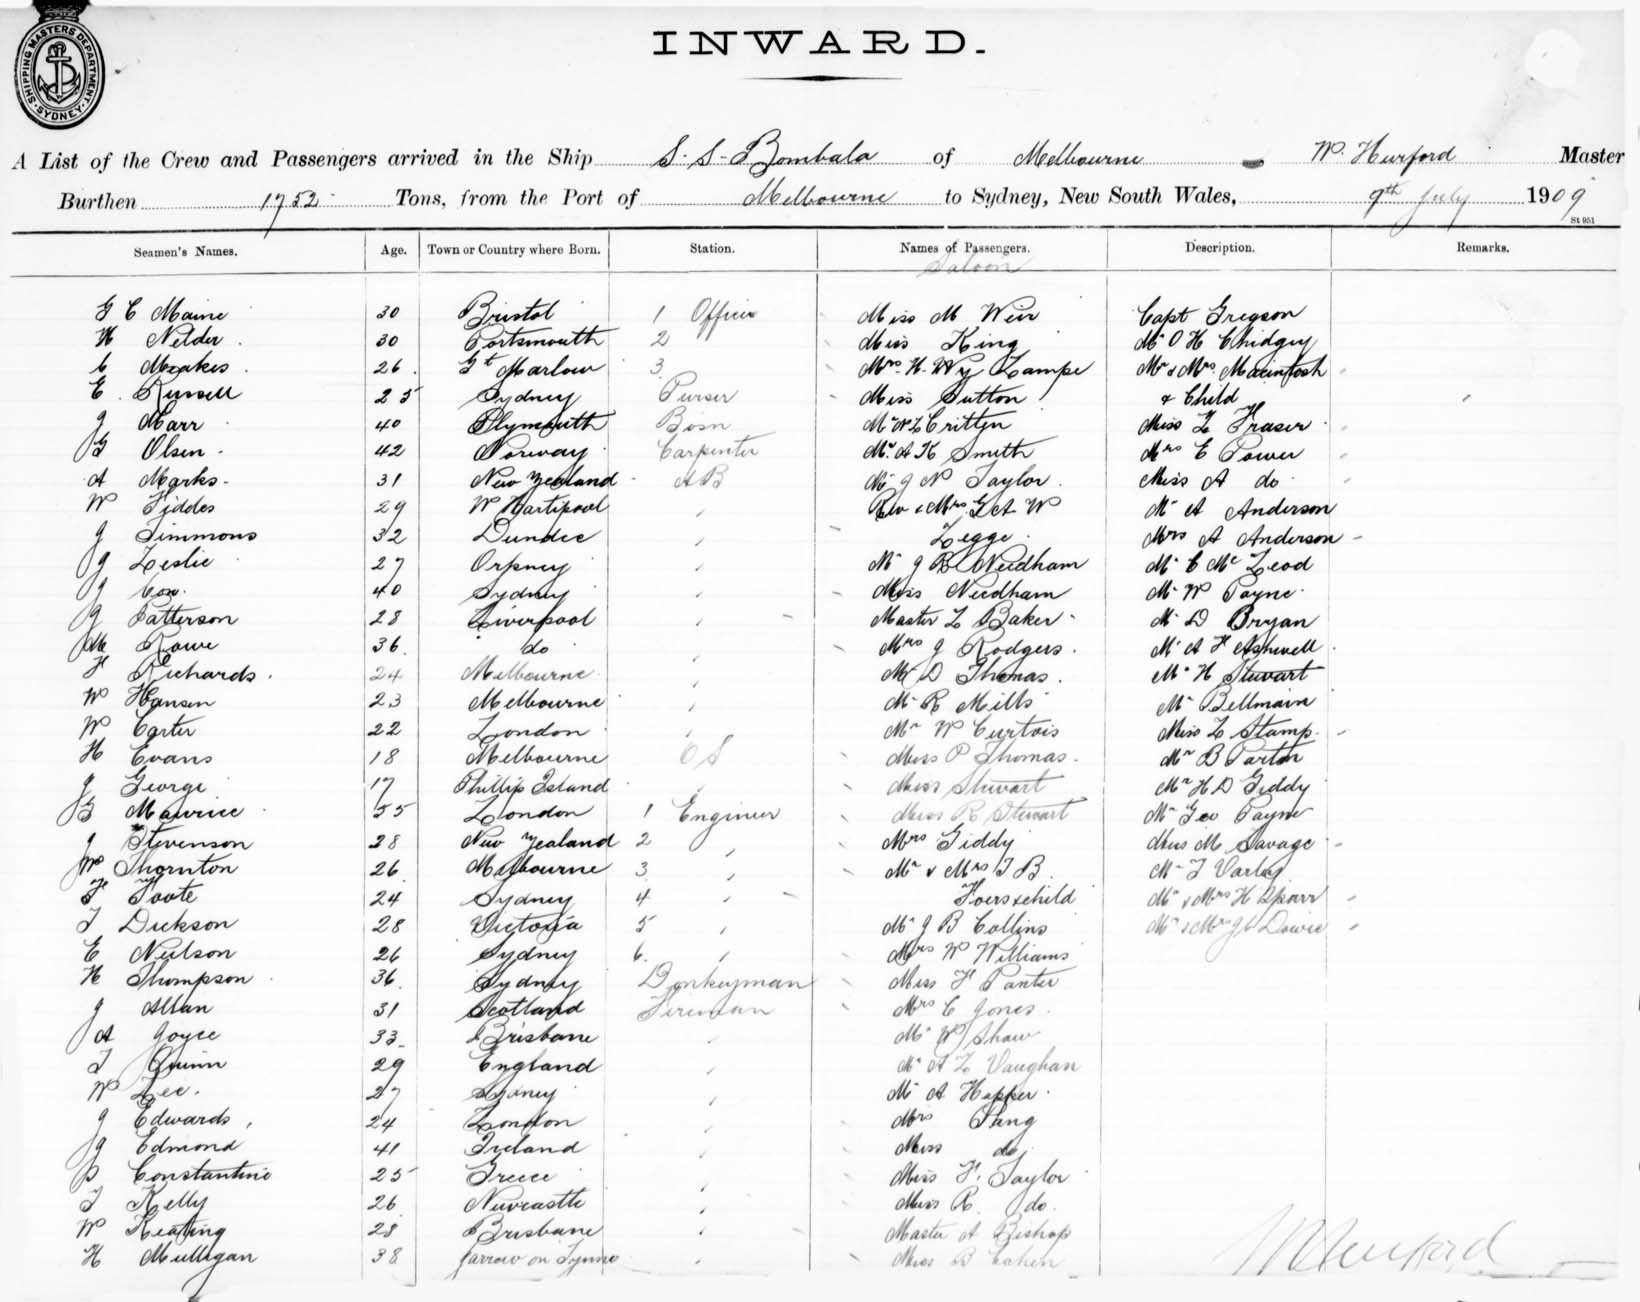 SHIPPING MASTERS DEPARTMENT. SYDNEY
INWARD.
A List of the Crew and Passengers arrived in the Ship S. S. Bombala of Melbourne W. Hurford Master
Burthen 1752 Tons, from the Port of Melbourne to Sydney, New South Wales, 9th July 1909
St 951
Seamen's Names. Age. Town or Country where Born. Station. Names of Passengers. Description. Remarks.
Saloon
G C Maine 30 Bristol 1 Officer Miss M Weir Capt Gregson
H Nelder 30 Portsmouth 2 Miss King Mr O H Chidgey
C Meakes 26 Gt Marlow 3 Mrs H Wy Lampe Mr & Mrs Macintosh
E Russell 25 Sydney Purser Miss Sutton & Child
J Marr 40 Plymouth Bosn Mr W L Critten Miss L Fraser
G Olsen 42 Norway Carpenter Mr A K Smith Mrs E Power
A Marks 31 New Zealand A B Mr J N Taylor Miss A do
W Fiddes 29 W Hartlpool Rev & Mrs G A W Mr A Anderson
J Simmons 32 Dundee Legge Mrs A Anderson
J Leslie 27 Orkney Mr J B Needham Mr C Mc Leod
J Cox 40 Sydney Miss Needham Mr W Payne
J Patterson 28 Liverpool Master L Baker Mr D Bryan
M Rowe 36 do Mrs J Rodgers Mr A F Ashwell
F Richards 24 Melbourne Mr D Thomas Mr H Stewart
W Hansen 23 Melbourne Mr R Mills Mr Bellmain
W Carter 22 London Mr W Curtois Miss L Stamp
H Evans 18 Melbourne O S Miss P Thomas Mr B Parton
J George 17 Phillip Island Miss Stewart Mr H D Giddy
G Maurice 55 London 1 Engineer Miss R Stewart Mr Geo Payne
J Stevenson 28 New Zealand 2 Mrs Giddy Miss M Savage
W Thornton 26 Melbourne 3 Mr & Mrs T B Mr T Varley
F Foote 24 Sydney 4 Foers & child Mr & Mrs H
T Dickson 28 Victoria 5 Mr J B Collins Mr & Mrs Dowie
E Neilson 26 Sydney 6 Mrs W Williams
H Thompson 36 Sydney Donkeyman Miss F Panter
J Allan 31 Scotland Fireman Mrs C Jones
A Joyce 33 Brisbane Mr W Shaw
T Quinn 29 England Mr A L Vaughan
W Lee 27 Sydney Mr A Hopper
J Edwards 24 London Mrs
J Edmond 41 Ireland Miss do
P Constantine 25 Greece Miss F Taylor
T Kelly 26 Newcastle Miss R do
W Keating 28 Brisbane Master A Bishop
H Mulligan 38 Jarrow on Tynne Miss B Cohen
W Hurford